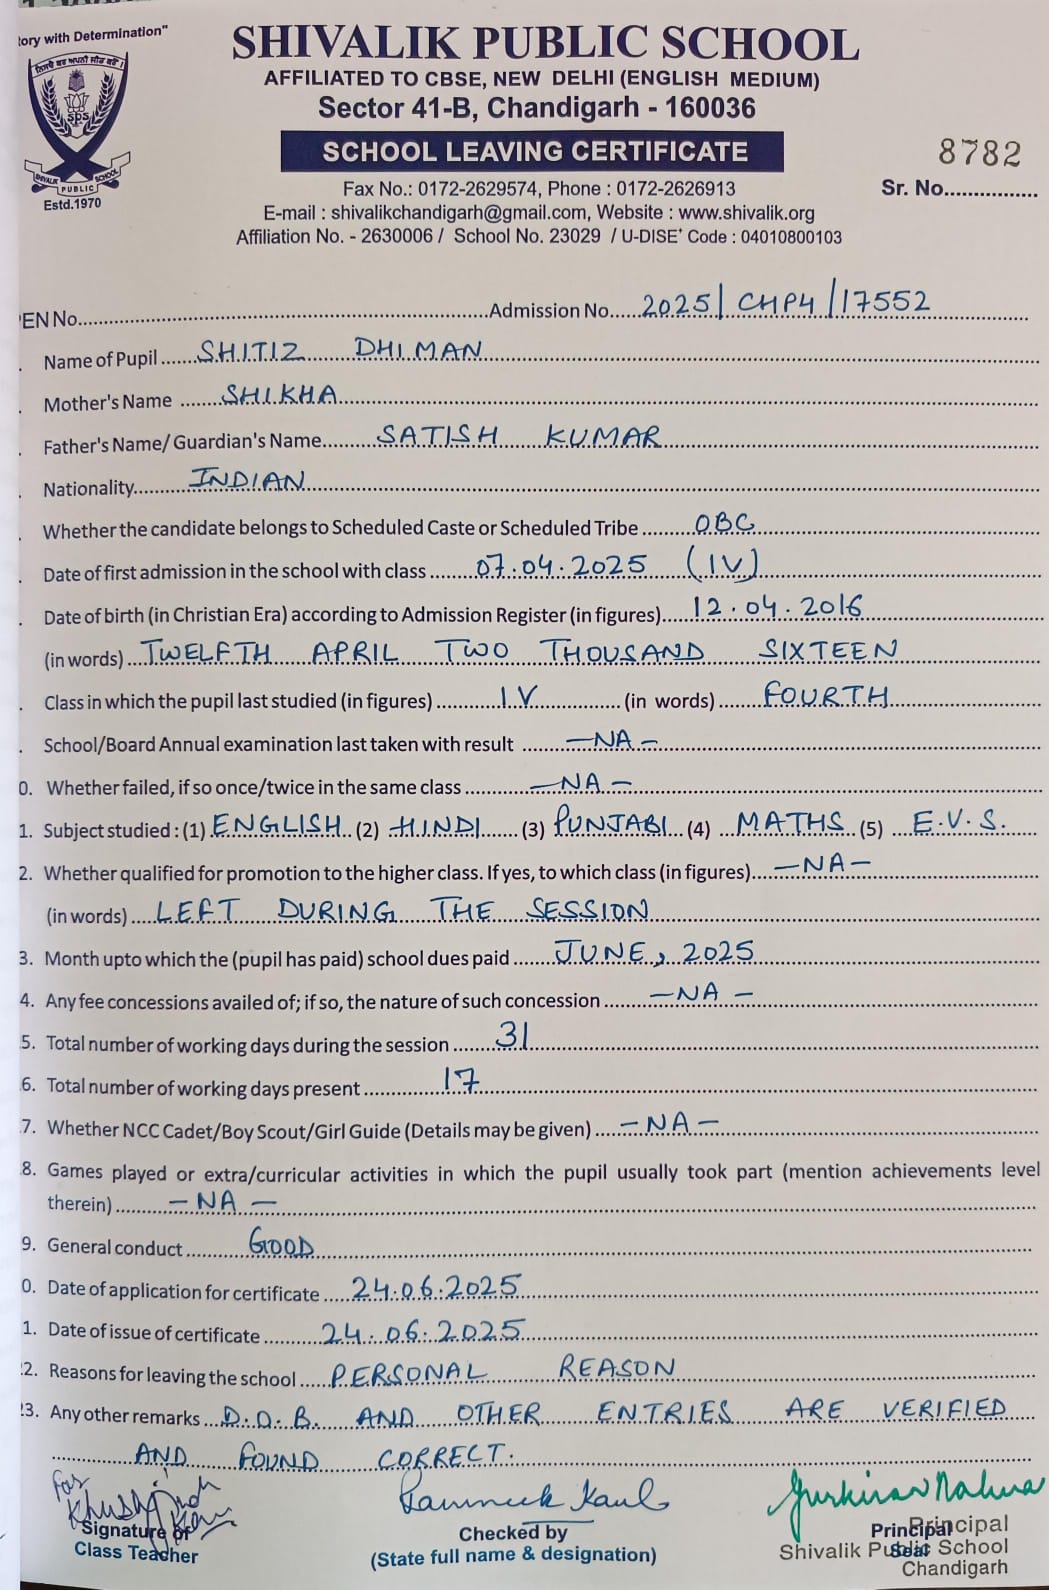 tory with Determination"
SHIVALIK PUBLIC SCHOOL
AFFILIATED TO CBSE, NEW DELHI (ENGLISH MEDIUM)
Sector 41-B, Chandigarh - 160036
SCHOOL LEAVING CERTIFICATE
SPS
SHIVALIK PUBLIC SCHOOL
Estd.1970
8782
Sr. No................
Fax No.: 0172-2629574, Phone : 0172-2626913
E-mail : shivalikchandigarh@gmail.com, Website : www.shivalik.org
Affiliation No. - 2630006 / School No. 23029 / U-DISE+ Code : 04010800103
EN No. Admission No. 2025/CHP4/17552
. Name of Pupil SHITIZ DHIMAN
. Mother's Name SHIKHA
. Father's Name/ Guardian's Name SATISH KUMAR
. Nationality INDIAN
. Whether the candidate belongs to Scheduled Caste or Scheduled Tribe OBC
. Date of first admission in the school with class 07.04.2025 (IV)
. Date of birth (in Christian Era) according to Admission Register (in figures) 12.04.2016
(in words) TWELFTH APRIL TWO THOUSAND SIXTEEN
. Class in which the pupil last studied (in figures) IV (in words) FOURTH
. School/Board Annual examination last taken with result -NA-
0. Whether failed, if so once/twice in the same class -NA-
1. Subject studied : (1) ENGLISH (2) HINDI (3) PUNJABI (4) MATHS (5) E.V.S.
2. Whether qualified for promotion to the higher class. If yes, to which class (in figures) -NA-
(in words) LEFT DURING THE SESSION
3. Month upto which the (pupil has paid) school dues paid JUNE, 2025
4. Any fee concessions availed of; if so, the nature of such concession -NA-
5. Total number of working days during the session 31
6. Total number of working days present 17
7. Whether NCC Cadet/Boy Scout/Girl Guide (Details may be given) -NA-
8. Games played or extra/curricular activities in which the pupil usually took part (mention achievements level
therein) -NA-
9. General conduct GOOD
0. Date of application for certificate 24.06.2025
1. Date of issue of certificate 24.06.2025
2. Reasons for leaving the school PERSONAL REASON
23. Any other remarks D.O.B. AND OTHER ENTRIES ARE VERIFIED
AND FOUND CORRECT.
For
Signature of
Class Teacher
Ramneek Kaul
Checked by
(State full name & designation)
Principal
Seal
Principal
Shivalik Public School
Chandigarh